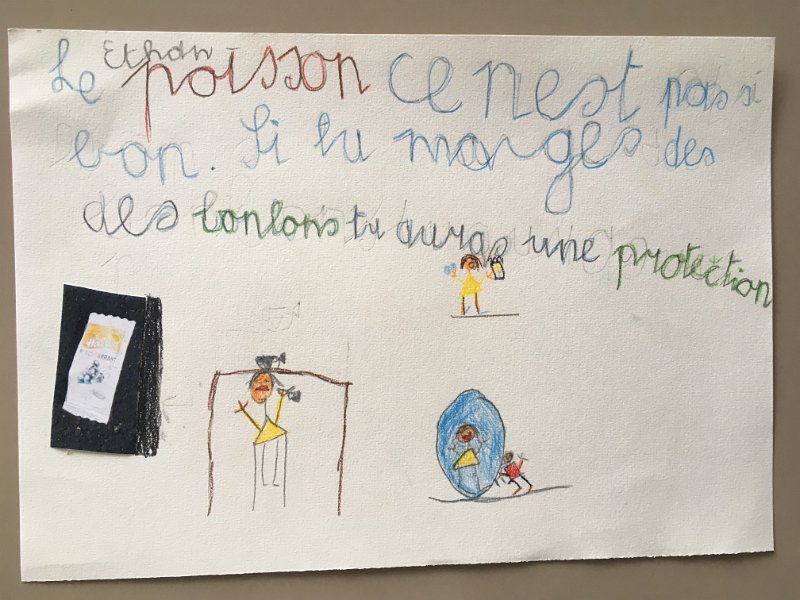 Ethan
Le poisson ce nest pas si
bon. Si tu manges des
des bonbons tu auras une protection